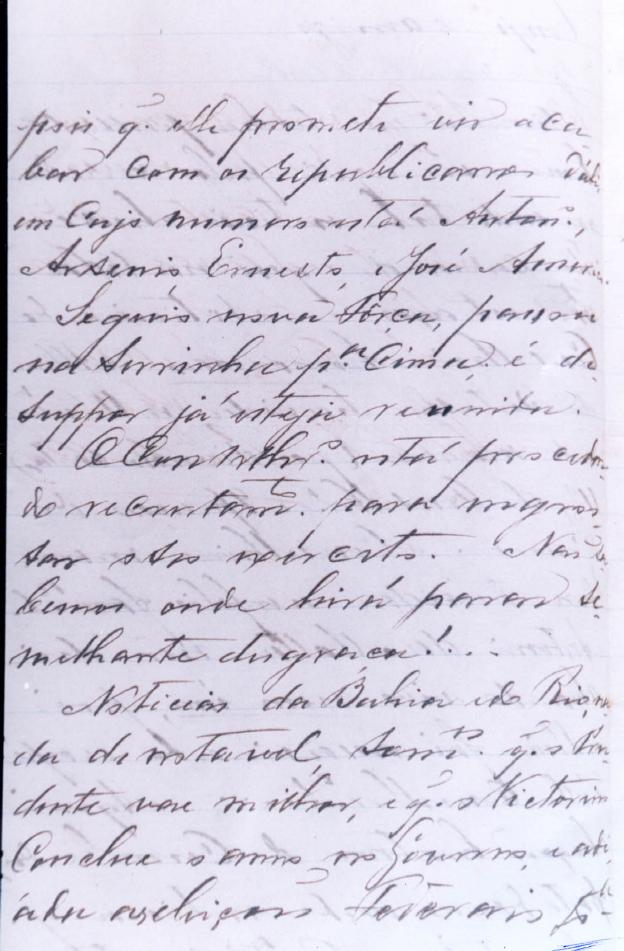 pois q.e elle promete vir aca-
bar com os republicanos d'ahi
em Cujo numero está Anton.o,
Arsenio, Ernesto, e José Amer
Seguio nova Força, passou
na Serrinha p.a Cima, é de
suppor já esteja reunida.
O Conselhr.o está proceden-
do recrutam.to para engros-
sar o seo exército. Não sa-
bemos onde hirá parar se-
milhante disgraça!..
Noticias da Bahia e do Rio, na-
da de notavel, som.te q.e o Presi-
dente vae milhor, e q.e o Victorino
Conclue o anno no Governo, e adi-
áda as eleições Federais p.a